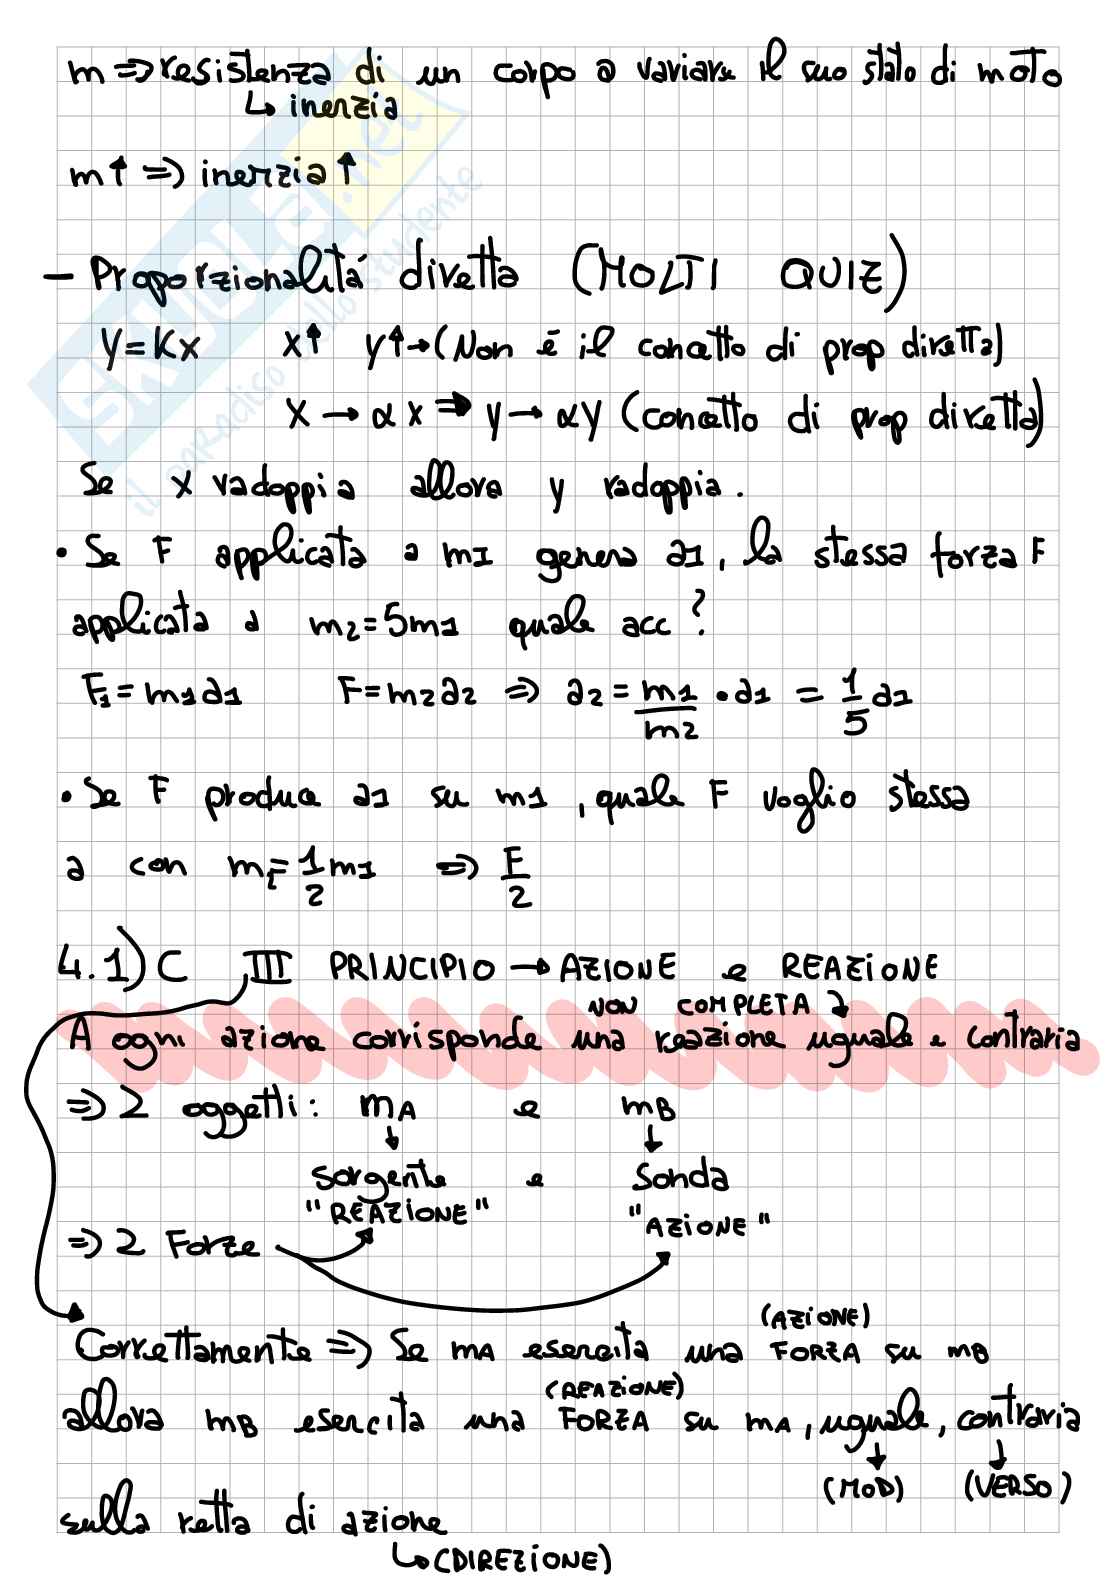 m => resistenza di un corpo a variare il suo stato di moto
↳ inerzia
m↑ => inerzia↑
- Proporzionalità diretta (MOLTI QUIZ)
y=Kx x↑ y↑→(Non è il concetto di prop diretta)
x → αx => y → αy (concetto di prop diretta)
Se x radoppia allora y radoppia.
• Se F applicata a m1 genera a1, la stessa forza F
applicata a m2=5m1 quale acc?
F1=m1a1 F=m2a2 => a2=m1/m2 • a1 = 1/5 a1
• Se F produce a1 su m1, quale F voglio stessa
a con m2=1/2 m1 => F/2
4.1) C III PRINCIPIO → AZIONE e REAZIONE
NON COMPLETA
A ogni azione corrisponde una reazione uguale e contraria
=> 2 oggetti: mA e mB
sorgente e sonda
"REAZIONE" "AZIONE"
=> 2 Forze
(AZIONE)
Correttamente => Se mA esercita una FORZA su mB
(REAZIONE)
allora mB esercita una FORZA su mA, uguale, contraria
(MOD) (VERSO)
sulla retta di azione
↳ (DIREZIONE)
SKUOLA.net
il paradiso dello studente